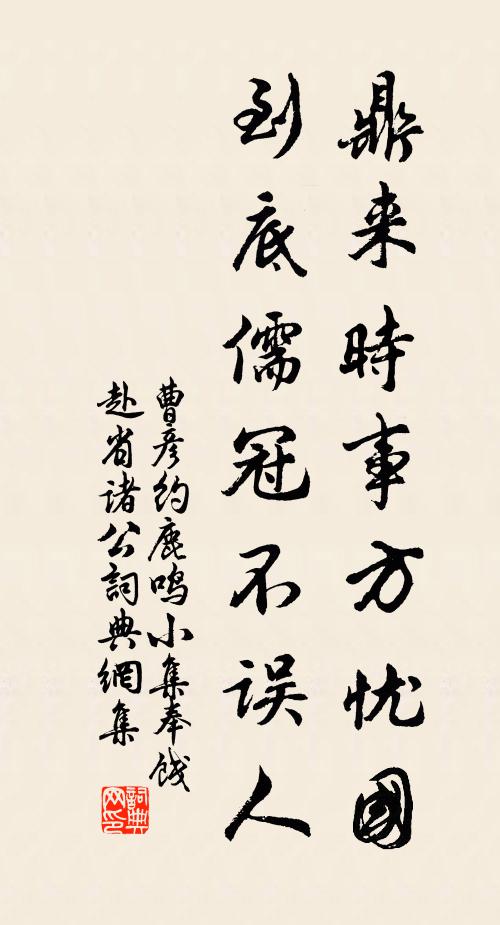 鼎来時事方忧國
到底儒冠不误人
曹彦约鹿鸣小集奉饯
赴省诸公詞典網集
詞典网印